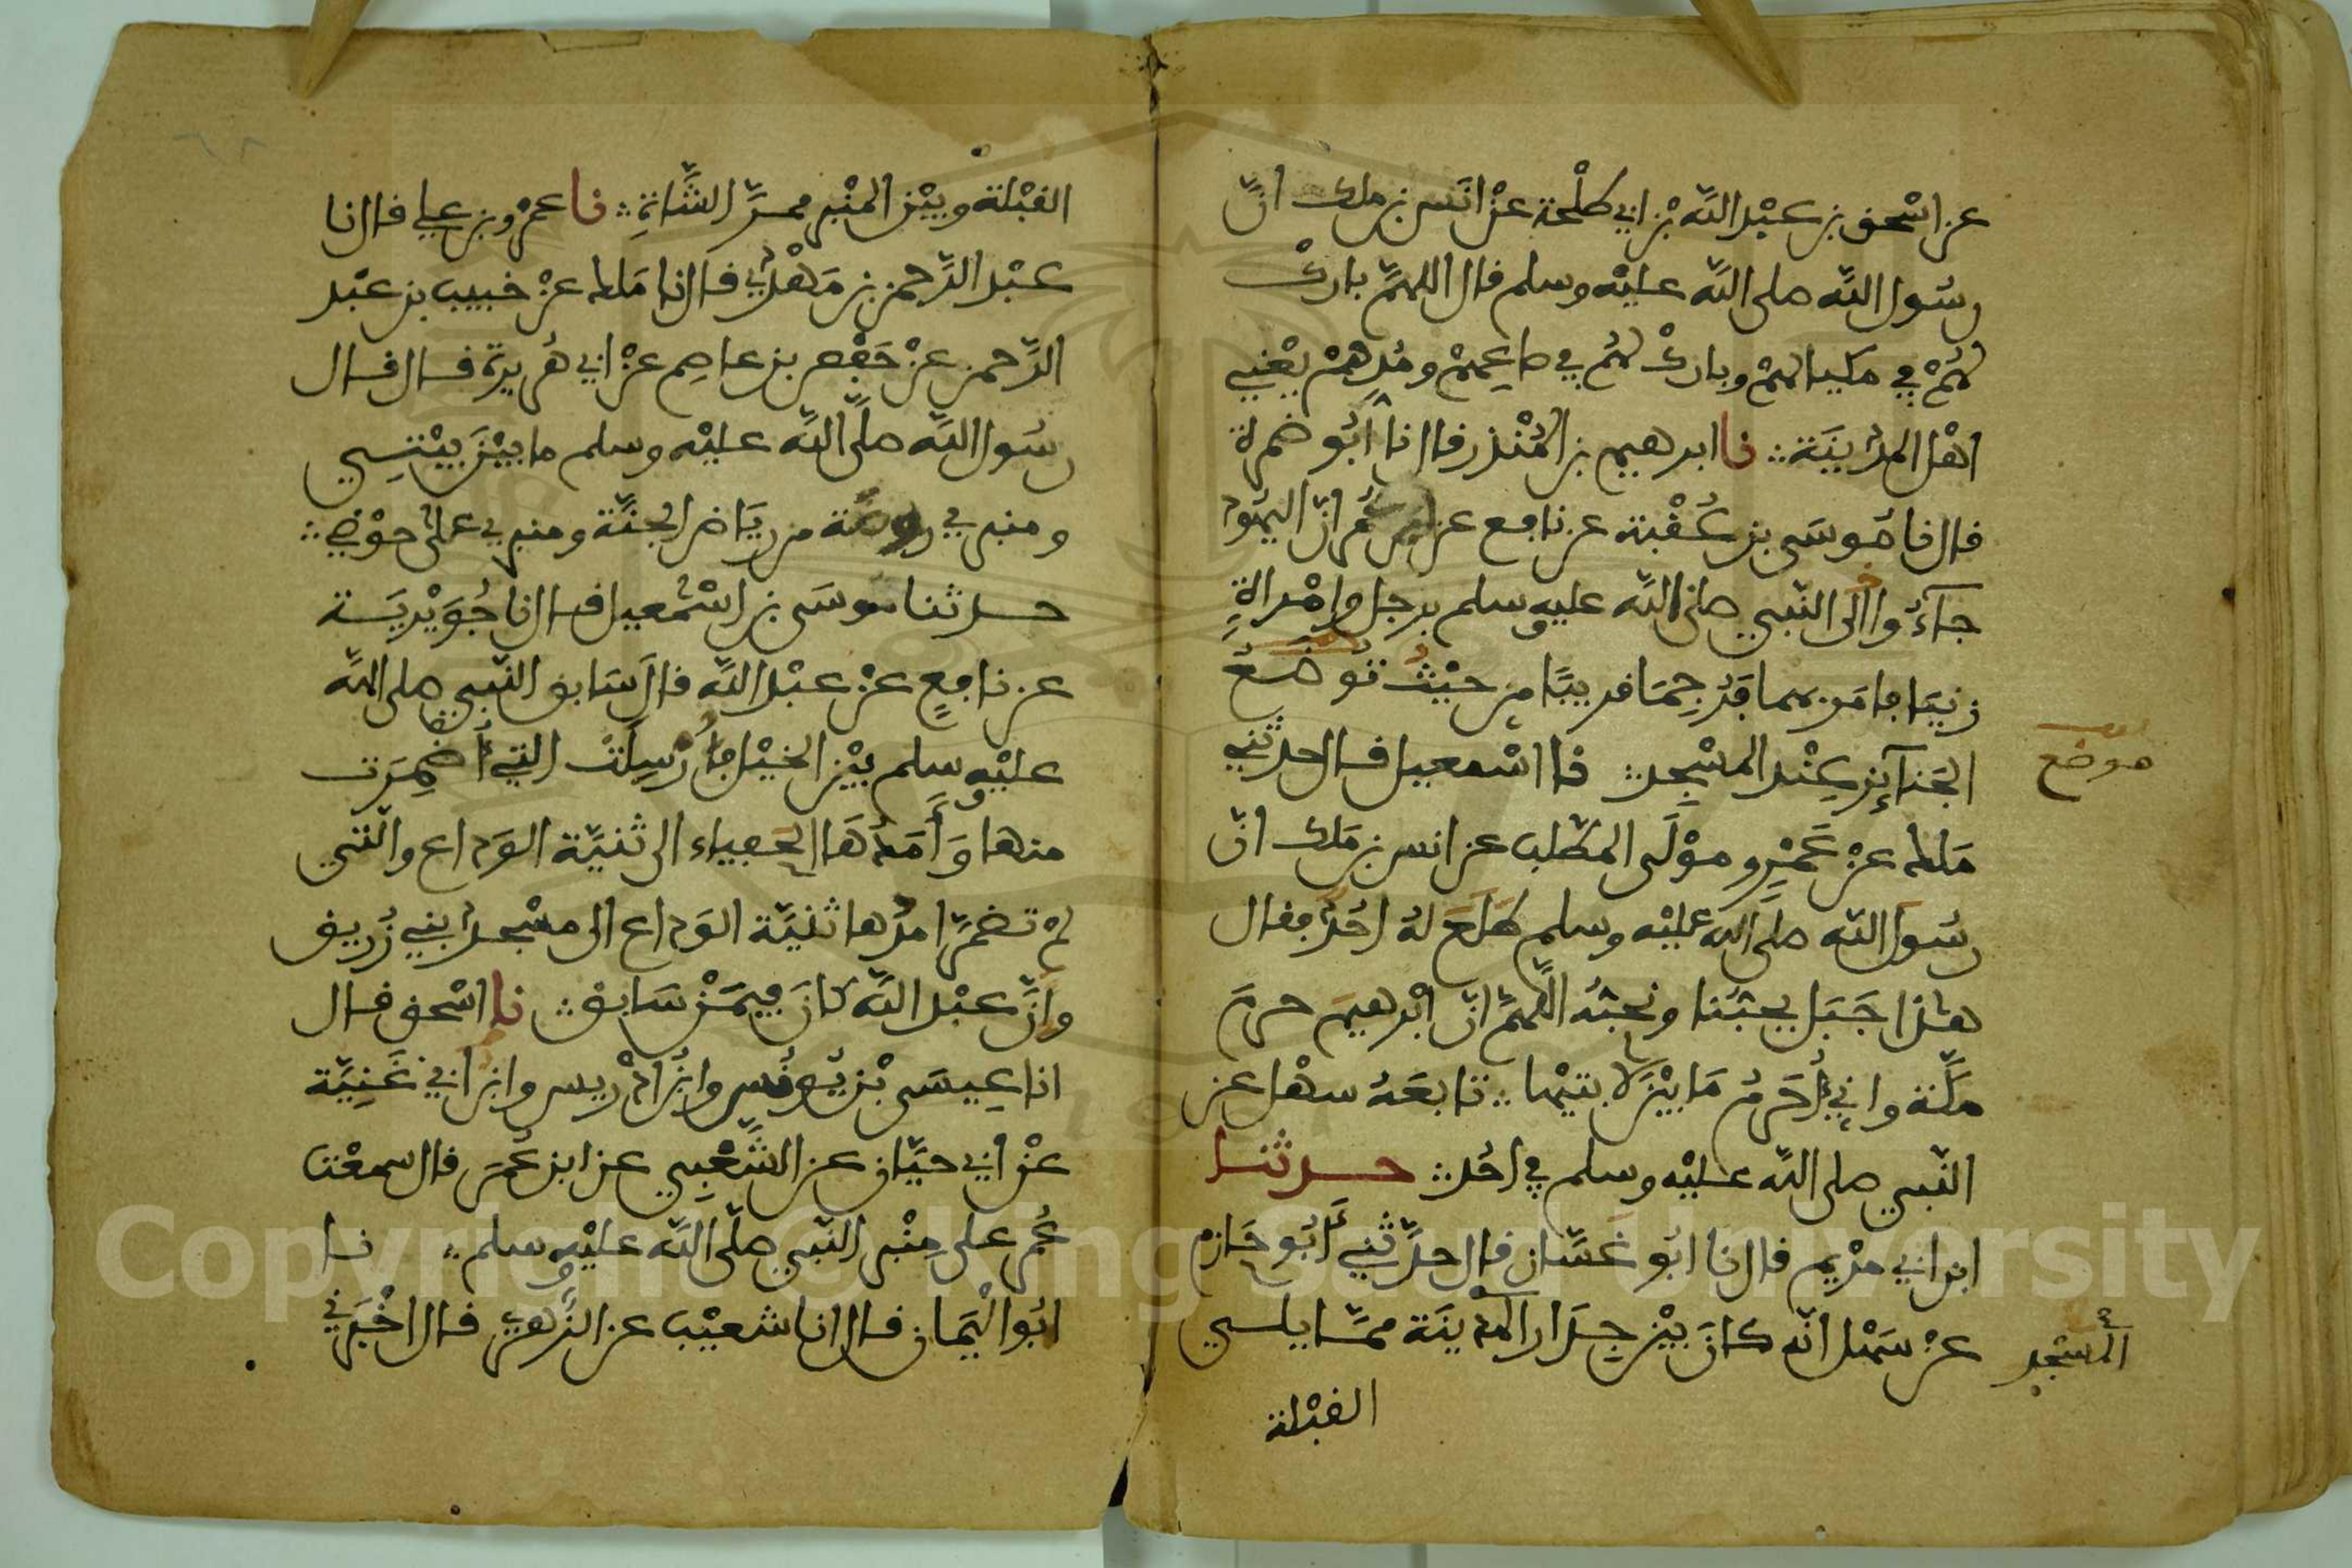 عن اسحق بن عبد الله بن ابي طلحة عن انس بن ملك انّ
رسُول الله صلى الله عليه وسلم قال اللهمّ بارك
لهُمْ في مكيالهمْ وبارك لهُم في صاعِهمْ ومُدّهمْ يعْني
اهْل المدينَة ۞ نا ابرهيم بن المُنْذر قال نا أبُو ضمرة
قال نا مُوسَى بن عُقْبة عن نافع عن ابن عُمر انّ اليهُود
جآءُوا الى النّبي صلى الله عليه وسلم برجل وامْراةٍ
زنيَا فامَر بهما فرُجِمَا قريبًا من حيْثُ توُضعُ
موضع
الجَنآئِز عِنْد المسْجِد ۞ نا اسْمعيل قال حدثني
مَلك عنْ عَمْرٍو موْلَى المطّلب عن انس بن مَلك انّ
رسُول الله صلى الله عليْه وسلم طَلَعَ لهُ احُدٌ فقال
هذا جَبَل يحبُنا ونحبّهُ اللّهمّ انّ ابْرهيمَ حرمَ
مكّة واني أُحَرمُ مَا بيْنَ لابتيْها ۞ تابعَهُ سهْل عن
النّبي صلى الله عليْه وسلم في احُد ۞ حدثنا
ابن ابي مرْيم قال نا ابُو غسّان قال حدّثني أَبُو حَازم
عنْ سَهْل انّه كانَ بيْن جِدَار المدينَة ممّا يلي
المسْجد
القبْلة
القبْلة وبيْن المنْبر ممرّ الشّاةِ ۞ نا عمْرو بن علي قال نا
عبْد الرّحمن بن مَهْدي قال نا مَلك عنْ خبيب بن عبْد
الرّحمن عنْ حَفْص بن عاصِم عنْ ابي هُريرة قال قال
رسُول الله صلّى الله عليْه وسلم ما بيْنَ بيْتِي
ومنبري روضَة من ريَاض الجنّة ومنبري على حوْضِي ۞
حدثنا موسَى بن اسْمعيل قال نا جُوَيْريَة
عن نافعٍ عنْ عبْد الله قال سَابق النّبي صلى الله
عليْه وسلم بيْن الخيْل فأُرْسِلَتْ التي أُضمِرَت
منها وَأَمَدُهَا الحَفياء الى ثنيّة الوَداع والّتي
لمْ تضمّر امدُها ثنيّة الوَداع الى مسْجد بني زُريق
وانّ عبْد الله كانَ فيمَنْ سَابق ۞ نا اسْحق قال
انا عِيسَى بْن يُونُس وابْن ادْريس وابن ابي غَنِيَّة
عنْ ابي حيّان عن الشّعْبِي عن ابن عُمَر قال سمعْت
عُمر على مِنْبر النّبي صلّى الله عليْه وسلم ۞ نا
ابُوا الْيَمان قال انا شعيْب عن الزُّهري قال اخْبَرني